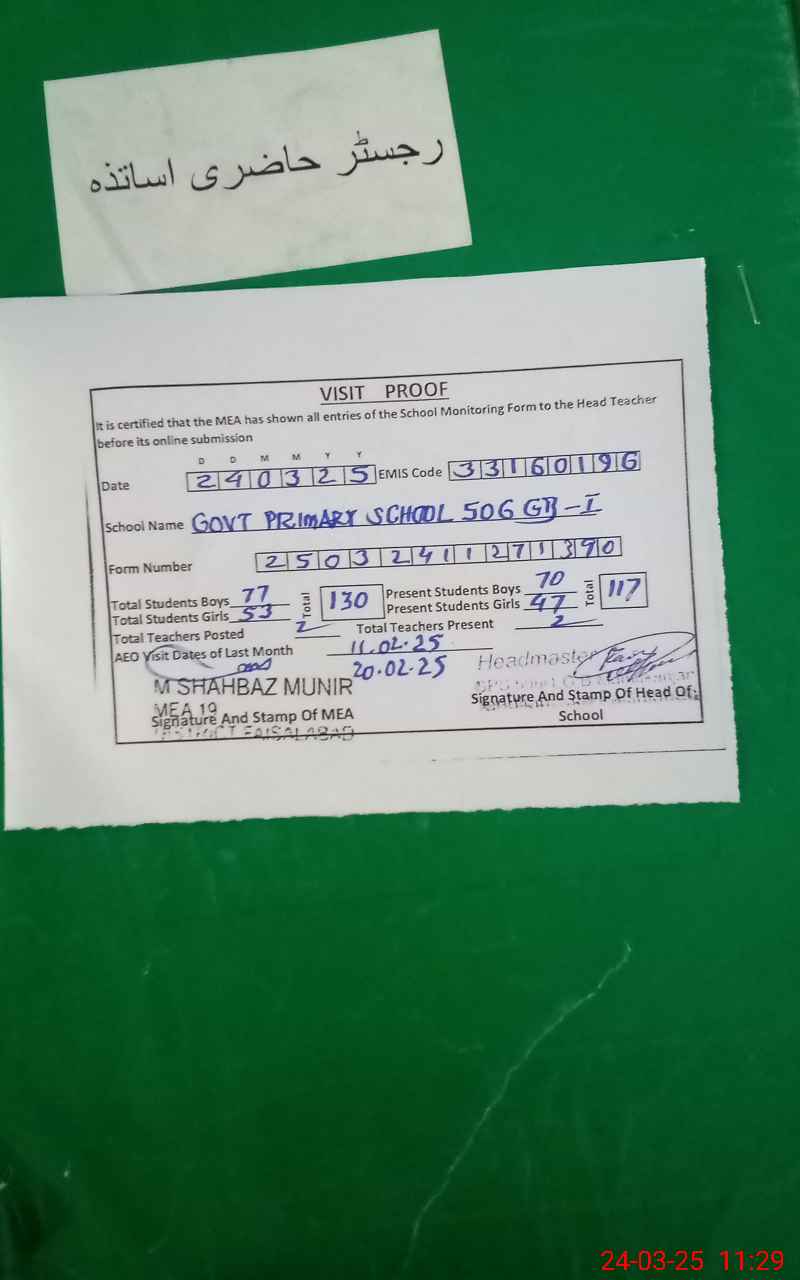 رجسٹر حاضری اساتذہ
VISIT PROOF
It is certified that the MEA has shown all entries of the School Monitoring Form to the Head Teacher
before its online submission
D D M M Y Y
Date 240325 EMIS Code 33160196
School Name GOVT PRIMARY SCHOOL 506 GB-I
Form Number 25032411271390
Total Students Boys 77 Total 130 Present Students Boys 70 Total 117
Total Students Girls 53 Present Students Girls 47
Total Teachers Posted 2 Total Teachers Present 2
AEO Visit Dates of Last Month 11.02.25
20.02.25
Headmaster
M SHAHBAZ MUNIR
MEA 19
Signature And Stamp Of MEA
DISTRICT FAISALABAD
Signature And Stamp Of Head Of
School
24-03-25 11:29